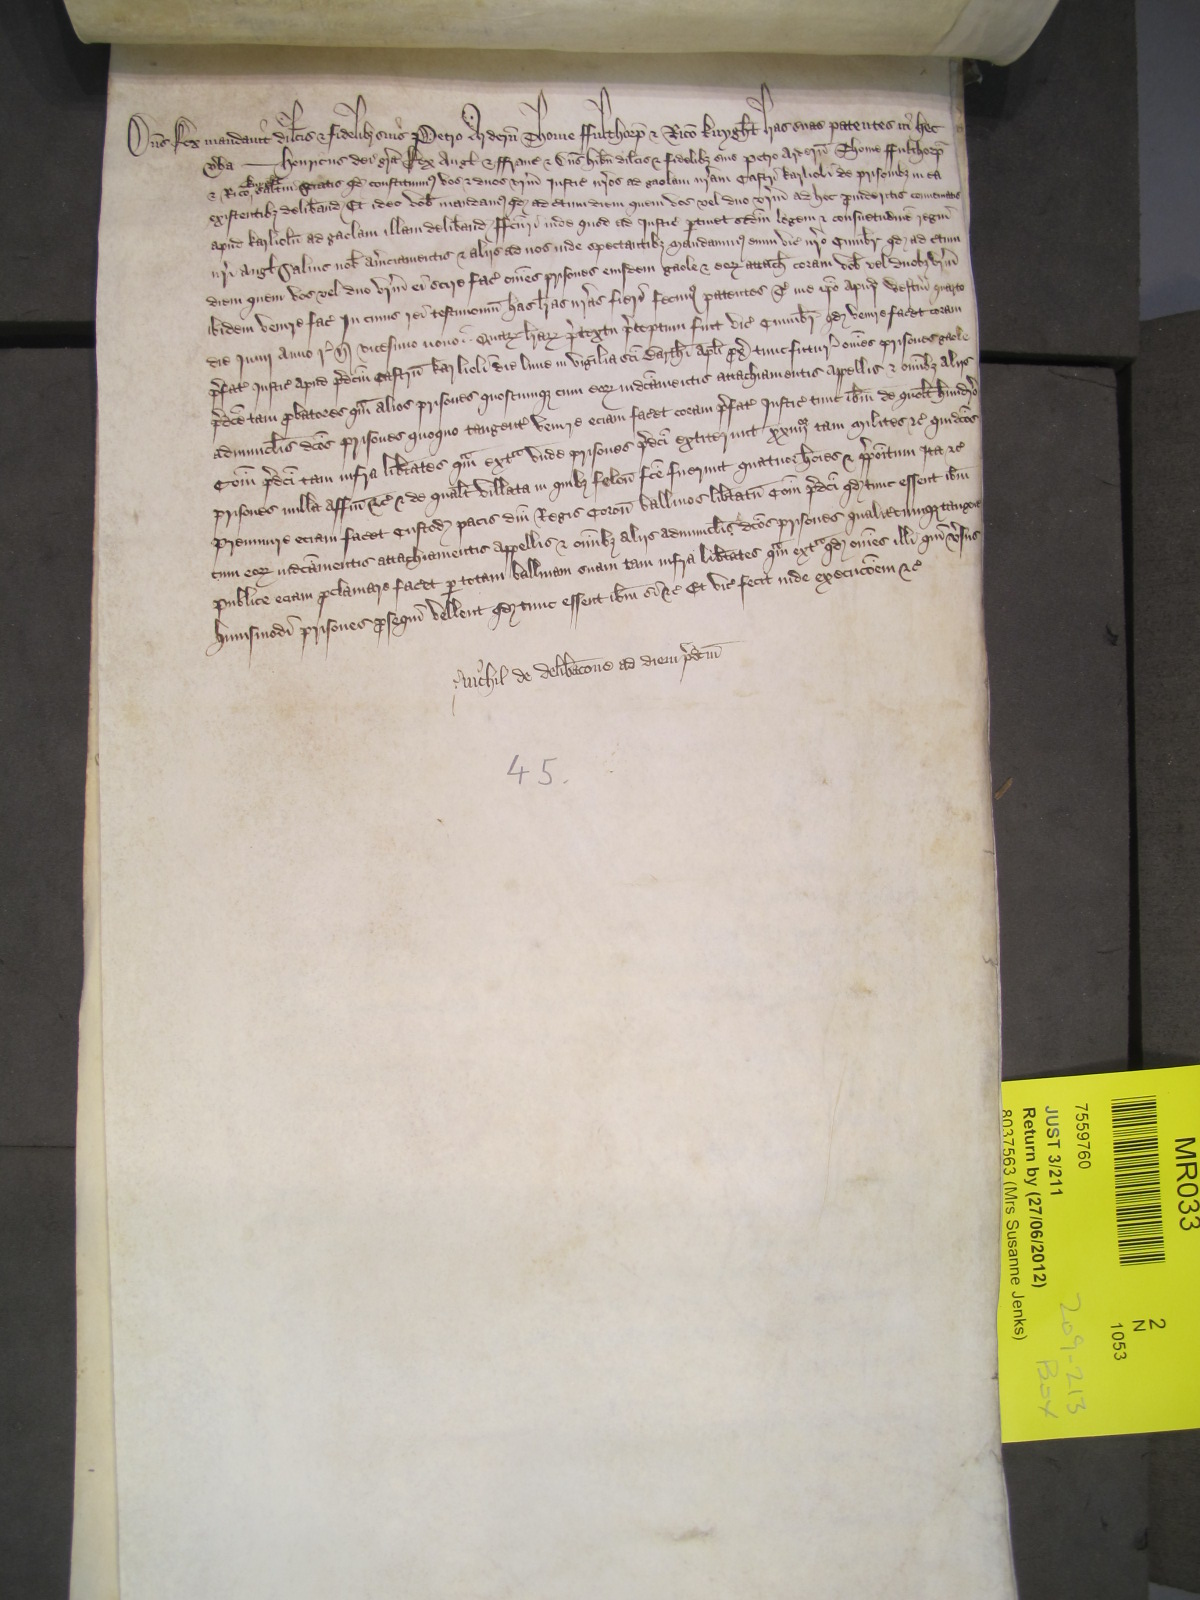 Dns Rex mandavit dilcis & fidelibz suis Petro Ardern Thome ffulthorp & Rico Knyght lras suas patentes in hec
vba Henricus dei gra Rex Angl & ffranc & dns Hibn dilcis & fidelibz suis Petro Ardern Thome ffulthorp
& Rico Knyght saltm Sciatis qd constituimus vos & duos vrm Justic nros ad gaolam nram Castri Karlioli de prisonibz in ea
existentibz deliband Et ideo vob mandamus qd ad certum diem quem vos vel duo vrm ad hec provideritis conveniatis
apud Karliolm ad gaolam illam deliband ffcuri inde quod ad Justic ptinet scdm legem & consuetudinem regni
nri Angl Salvis nob amciamentis & aliis ad nos inde spectantibz Mandavimus enim vic nro Cumbr qd ad certum
diem quem vos vel duo vrm ei scire fac omes prisones eiusdem gaole & eorz attach coram vob vel duobz vrm
ibidem venire fac In cuius rei testimonm has lras nras fieri fecimus patentes T me ipo apud Westm quarto
die Junii anno r n vicesimo nono Quarz lrarz ptextu pceptum fuit vic Cumbr qd venire facet coram
pfat Justic apud pdcm Castrum Karlioli die lune in vigilia sci Barthi apli px tunc futur omes prisones gaole
pdce tam pbatores qm alios prisones quoscumqz cum eorz indcamentis attachiamentis appellis & omibz aliis
adminiclis dcos prisones quoquo tangent venire eciam facet coram pfat Justic tunc ibm de quolt hundro
Com pdci tam infra libtates qm extra unde prisones pdci extiterunt xxiiii tam milites &c quidcos
prisones nulla affin &c & de qualt villata in quibz felon fce fuerunt quatuor hoies & ppositum Ita &c
premunire eciam facet Custod pacis dni Regis Coron ballivos libtatu Com pdci qd tunc essent ibm
cum eorz indcamentis attachiamentis appellis & omibz aliis adminiclis dcos prisones qualitcumqz tangent
publice eciam pclamare facet p totam ballivam suam tam infra libtates qm extra qd omes illi qui vsus
huiusmodi prisones psequi vellent qd tunc essent ibm si &c Et vic fecit inde execucoem &c
Nichil de delibacone ad diem pdcm
45.
MR033
7559760
JUST 3/211
Return by (27/06/2012)
8037563 (Mrs Susanne Jenks)
2
N
1053
209-213
Box